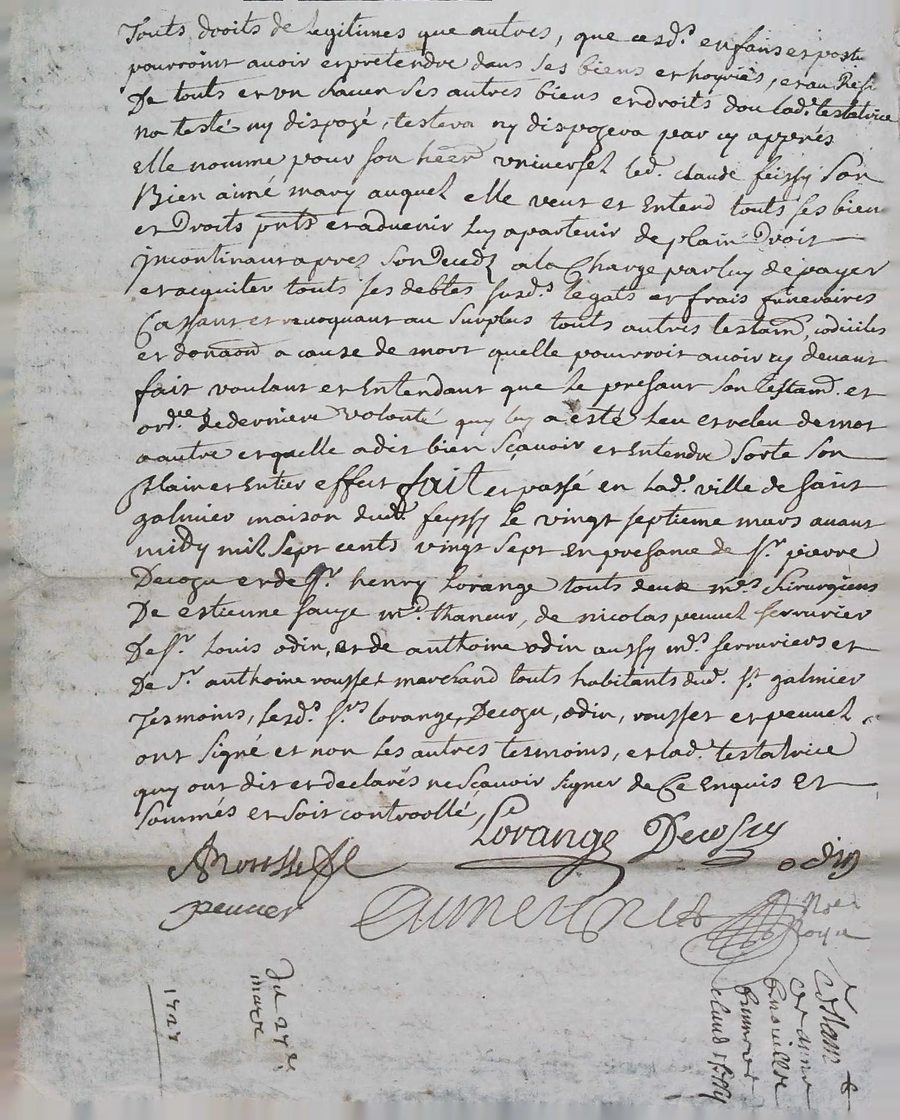 Touts droits de legitimes que autres, que cesd.s enfans et post.
pourroint avoir et pretendre dans ses biens et hoyries, et au Resi
De touts et un chacun ses autres biens et droits dou lad.e testatrice
na testé ny dispozé, testera ny dispozera par cy apprés
elle nomme pour son heer universel led. claude feissy son
Bien aimé mary auquel elle veut et Entend touts ses bien
et Droits pnts et advenir luy apartenir de plain Droit
Jncontinant apres son Deceds a la Charge par luy de payer
et acquiter touts ses debtes susd.s legats et frais funeraires
Cassant et revoquant au surplus touts autres testam, codiciles
et donaon a cause de mort quelle pourroit avoir cy devant
fait voulant et Entendant que le presant son testam. et
ord.ce de derniere volonté quy luy a esté leu et releu de mot
a autre et quelle a dit bien sçavoir et Entendre sorte son
plain et Entier effect fait et passé en lad. ville de saint
galmier maison dud. feissy le vingt septieme mars avant
midy mil sept cents vingt sept en presance de s.r pierre
Decozu et de s.r henry lorange touts deux m.es chirurgiens
De estienne sauze m.d thaneur, de nicolas peuvel serrurier
De s.r louis odin, et de anthoine odin aussy m.s serruriers et
De s.r anthoine rousset marchand touts habitants dud. s.t galmier
Tesmoins, lesd.s s.rs lorange, Decozu, odin, rousset et peuvel
ont signé et non les autres tesmoins, et lad. testatrice
quy ont dit et declarés ne scavoir signer de Ce enquis et
sommés et soit controollé,
Lorange Decosu
A Rousset odin
peuvel
No.re Royal
du 27e
mars
1727
Testam
claud feissy